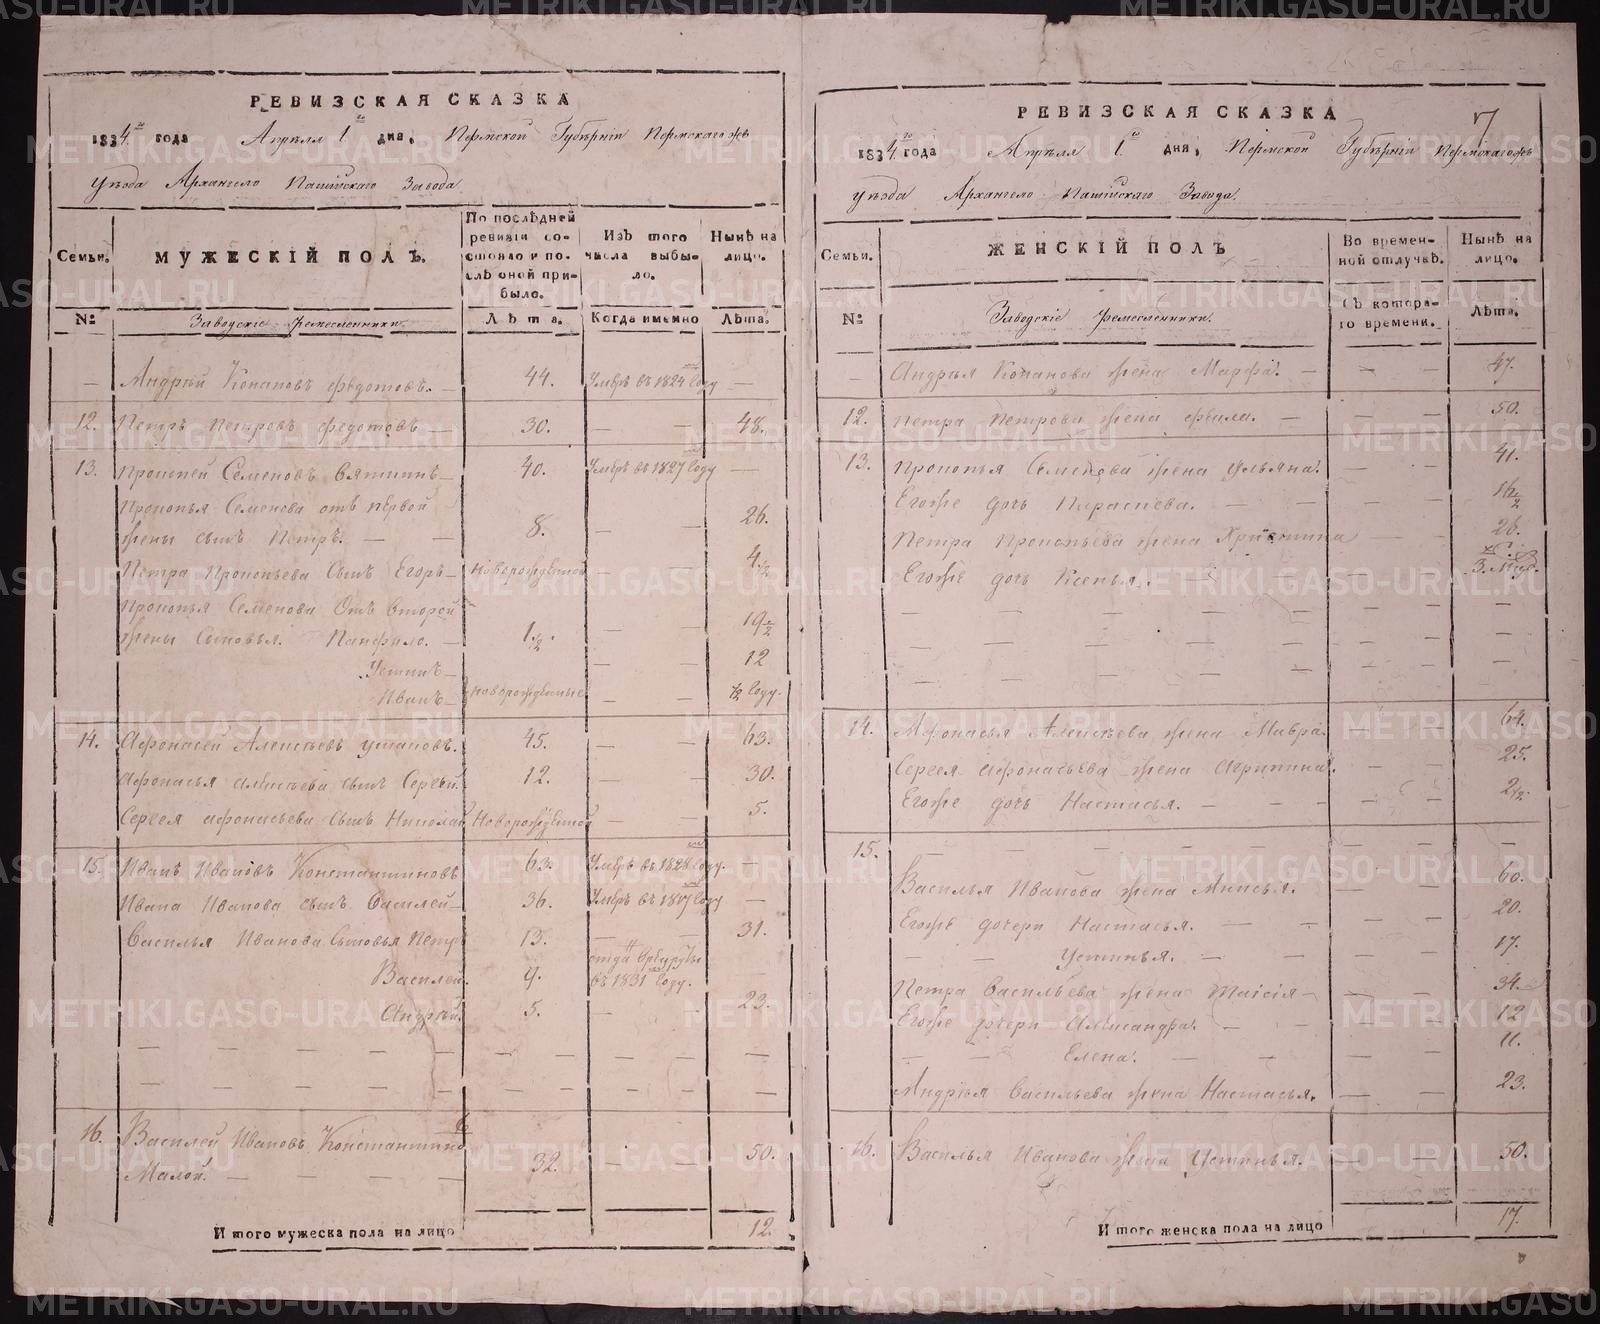 РЕВИЗСКАЯ СКАЗКА
1834го года Апреля 1го дня, Пермской Губѣрніи Пермскагожъ
уѣзда Архангело Пашійскаго Завода.
Семьи.
МУЖЕСКІЙ ПОЛЪ.
По послѣдней ревизіи состояло и послѣ оной прибыло.
Изъ того числа выбыло.
Нынѣ на лицо.
№ Заводскіе ремесленники. Лѣта. Когда именно Лѣта.
— Андрѣй Копаповъ Федотовъ. — 44. Умѣръ въ 1824м Году —
12. Петръ Петровъ Федотовъ — 30. — — 48.
13. Прокопей Семеновъ Вяткинъ — 40. Умѣръ въ 1827м Году —
Прокопья Семенова отъ первой
жены сынъ Петръ. — — 8. — — 26.
Петра Прокопьева Сынъ Егоръ — Новорожденной — — 4 1/2
Прокопья Семенова Отъ второй
жены Сыновья. Панфило. — 1 1/2. — — 19 1/2
Устинъ — — — 12
Иванъ — Новорожденные — — 1/2 Году.
14. Афонасей Алексѣевъ Ушаковъ. 45. — — 63.
Афонасья Алексѣева сынъ Сергѣй. 12. — — 30.
Сергея Афонасьева Сынъ Николай Новорожденной — — 5.
15. Иванъ Ивановъ Константиновъ 63. Умѣръ въ 1828м Году. —
Ивана Иванова сынъ Василей — 36. Умѣръ въ 1817м Году —
Василья Иванова Сыновья Петръ 13. — — 31.
Василей. 9. отдан в рекруты
въ 1831м Году.
Андрѣй. 5. — — 23.
— — — — — — — — —
— — — — — — — — —
16. Василей Ивановъ Константиновъ
Малой. — — — 32. — — 50.
И того мужеска пола на лицо 12.
7
РЕВИЗСКАЯ СКАЗКА
1834го года Апрѣля 1го дня, Пермской Губѣрніи Пермскагожъ
уѣзда Архангело Пашійскаго Завода.
Семьи.
ЖЕНСКІЙ ПОЛЪ
Во временной отлучкѣ.
Нынѣ на лицо.
№ Заводскіе ремесленники. Съ которого времени. Лѣта.
— Андрѣя Копапова жена Марфа. — — — 47.
12. Петра Петрова жена Фекла. — — — 50.
13. Прокопья Семенова жена Ульяна. — — 41.
Егожъ дочь Параскева. — — — 16 1/2
Петра Прокопьева жена Христина — — 26.
Егожъ дочь Ксенья. — — — — 3. Мѣс.
— — — — — — — —
— — — — — — — —
— — —
14. Афонасья Алексѣева жена Мавра. — — 64.
Сергея Афонасьева жена Агрипина. — — 25.
Егожъ дочь Настасья. — — — — 2 1/2.
15. — — — — — — — —
Василья Иванова жена Анисья. — — 60.
Егожъ дочери Настасья. — — — — 20.
— — Устинья. — — — — 17.
Петра Васильева жена Таисія — — — 34.
Егожъ дочери Александра. — — — — 12
— — Елена. — — — — 11.
Андрѣя Васильева жена Настасья. — — 23.
16. Василья Иванова жена Устинья. — — 50.
И того женска пола на лицо 17.
METRIKI.GASO-URAL.RU